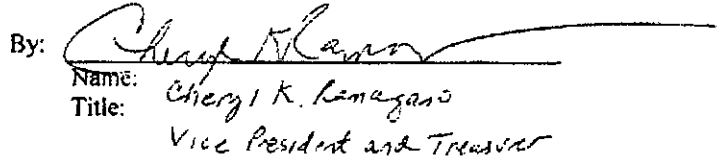 By: Cheryl K Ramag
Name: Cheryl K. Ramagaso
Title:
Vice President and Treasurer